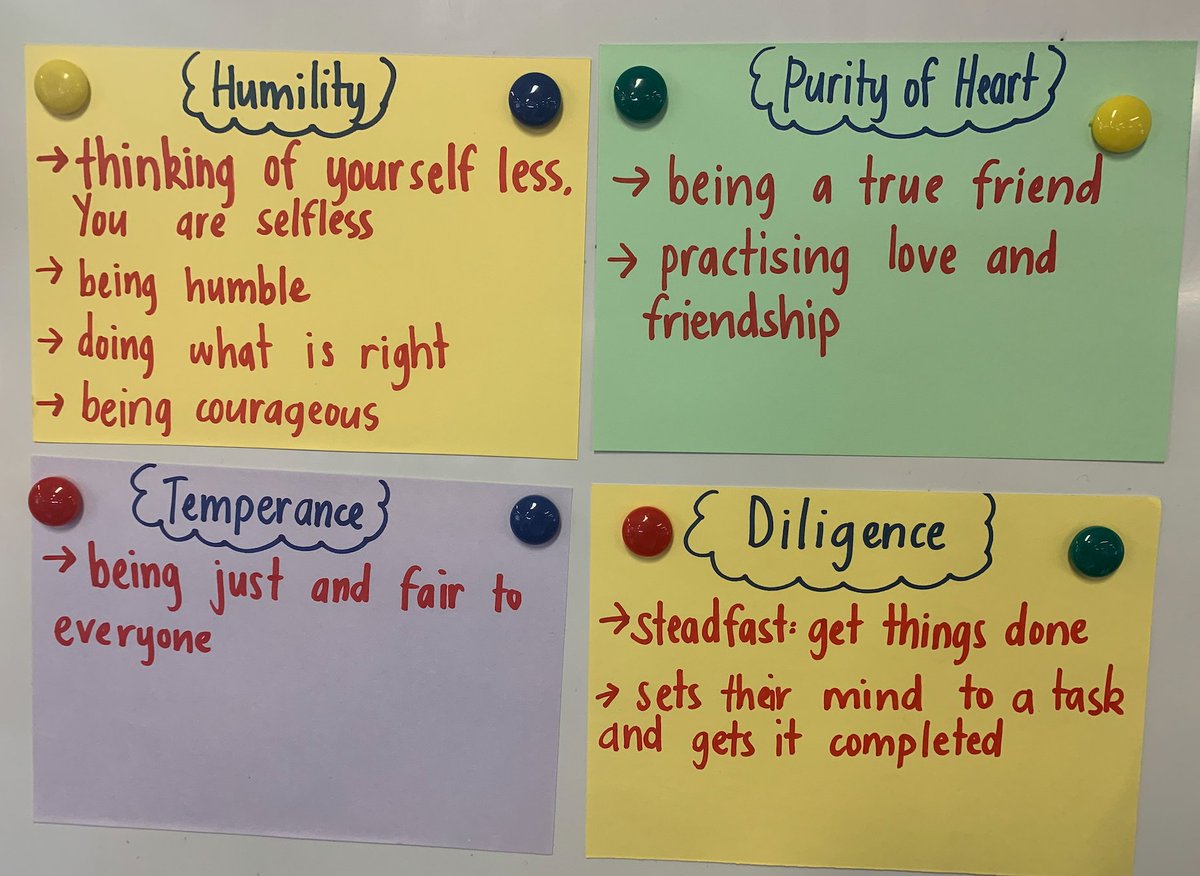 Humility
→ thinking of yourself less.
You are selfless
→ being humble
→ doing what is right
→ being courageous
Purity of Heart
→ being a true friend
→ practising love and
friendship
Temperance
→ being just and fair to
everyone
Diligence
→ steadfast: get things done
→ sets their mind to a task
and gets it completed